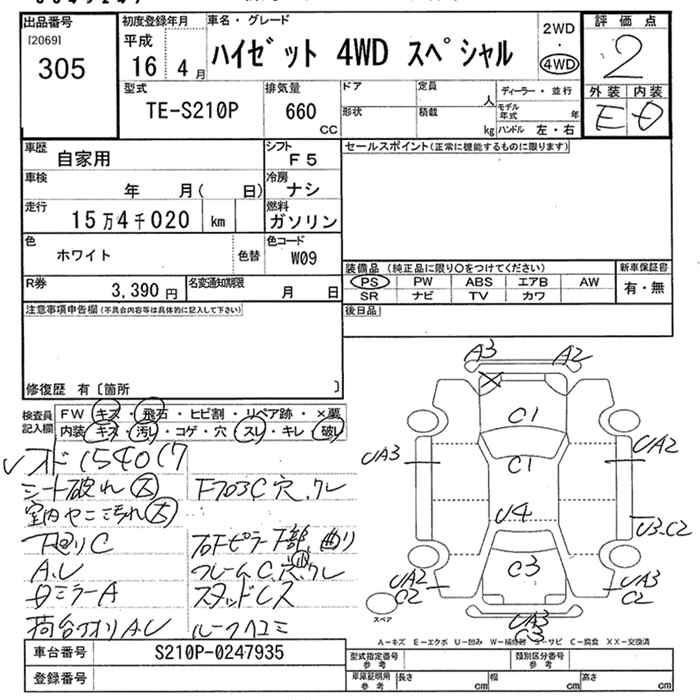 出品番号
[2069]
305
初度登録年月
平成
16 4 月
車名・グレード
ハイゼット 4WD スペシャル
2WD
・
4WD
評価点
2
外装 内装
E D
型式
TE-S210P
排気量
660
CC
ドア
形状
定員
人
積載
kg
ディーラー・並行
モデル年式 年
ハンドル 左・右
車歴
自家用
シフト
F5
車検
年 月( 日)
冷房
ナシ
走行
15万4千020 km
燃料
ガソリン
色
ホワイト
色替
色コード
W09
R券
3,390 円
名変通知期限
月 日
セールスポイント(正常に機能するものに限ります)
装備品 (純正品に限り○をつけてください)
PS PW ABS エアB AW
SR ナビ TV カワ
新車保証書
有・無
後日品
注意事項申告欄(不具合内容等は具体的に記入して下さい)
修復歴 有〔箇所 〕
検査員記入欄
FW キズ・飛石・ヒビ割・リペア跡・×要
内装 キズ・汚れ・コゲ・穴・スレ・キレ・破れ
シート破れ 大
室内ヤニ汚れ 大
下廻りC
A.U
ミラーA
荷台アオリA.U
スタッドレス
A3 A2
C1
C1
UA3
UA2
U4
U3.C2
C3
UA2
C2
UA3
C2
UA3
C3
スペア
A-キズ E-エクボ U-凹み W-補修跡 S-サビ C-腐食 XX-交換済
車台番号
S210P-0247935
登録番号
型式指定番号
参考
類別区分番号
参考
車庫証明用
参考
長さ cm
幅 cm
高さ cm